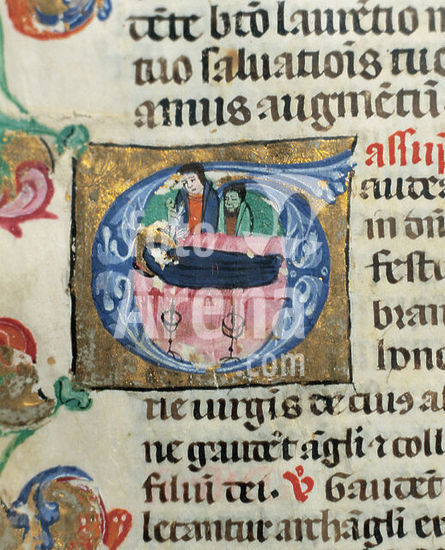 tēte btō laurētio
tuo saluatiōis tuo
amus augmētū
assūp
aude
in dn̄
festi
bran
rie uirgīs de cuius as
ne gaudēt āgli ⁊ coll
filiū dei. ℣ Gaudēt
letantur archāgli ex
foto
Arena
.com